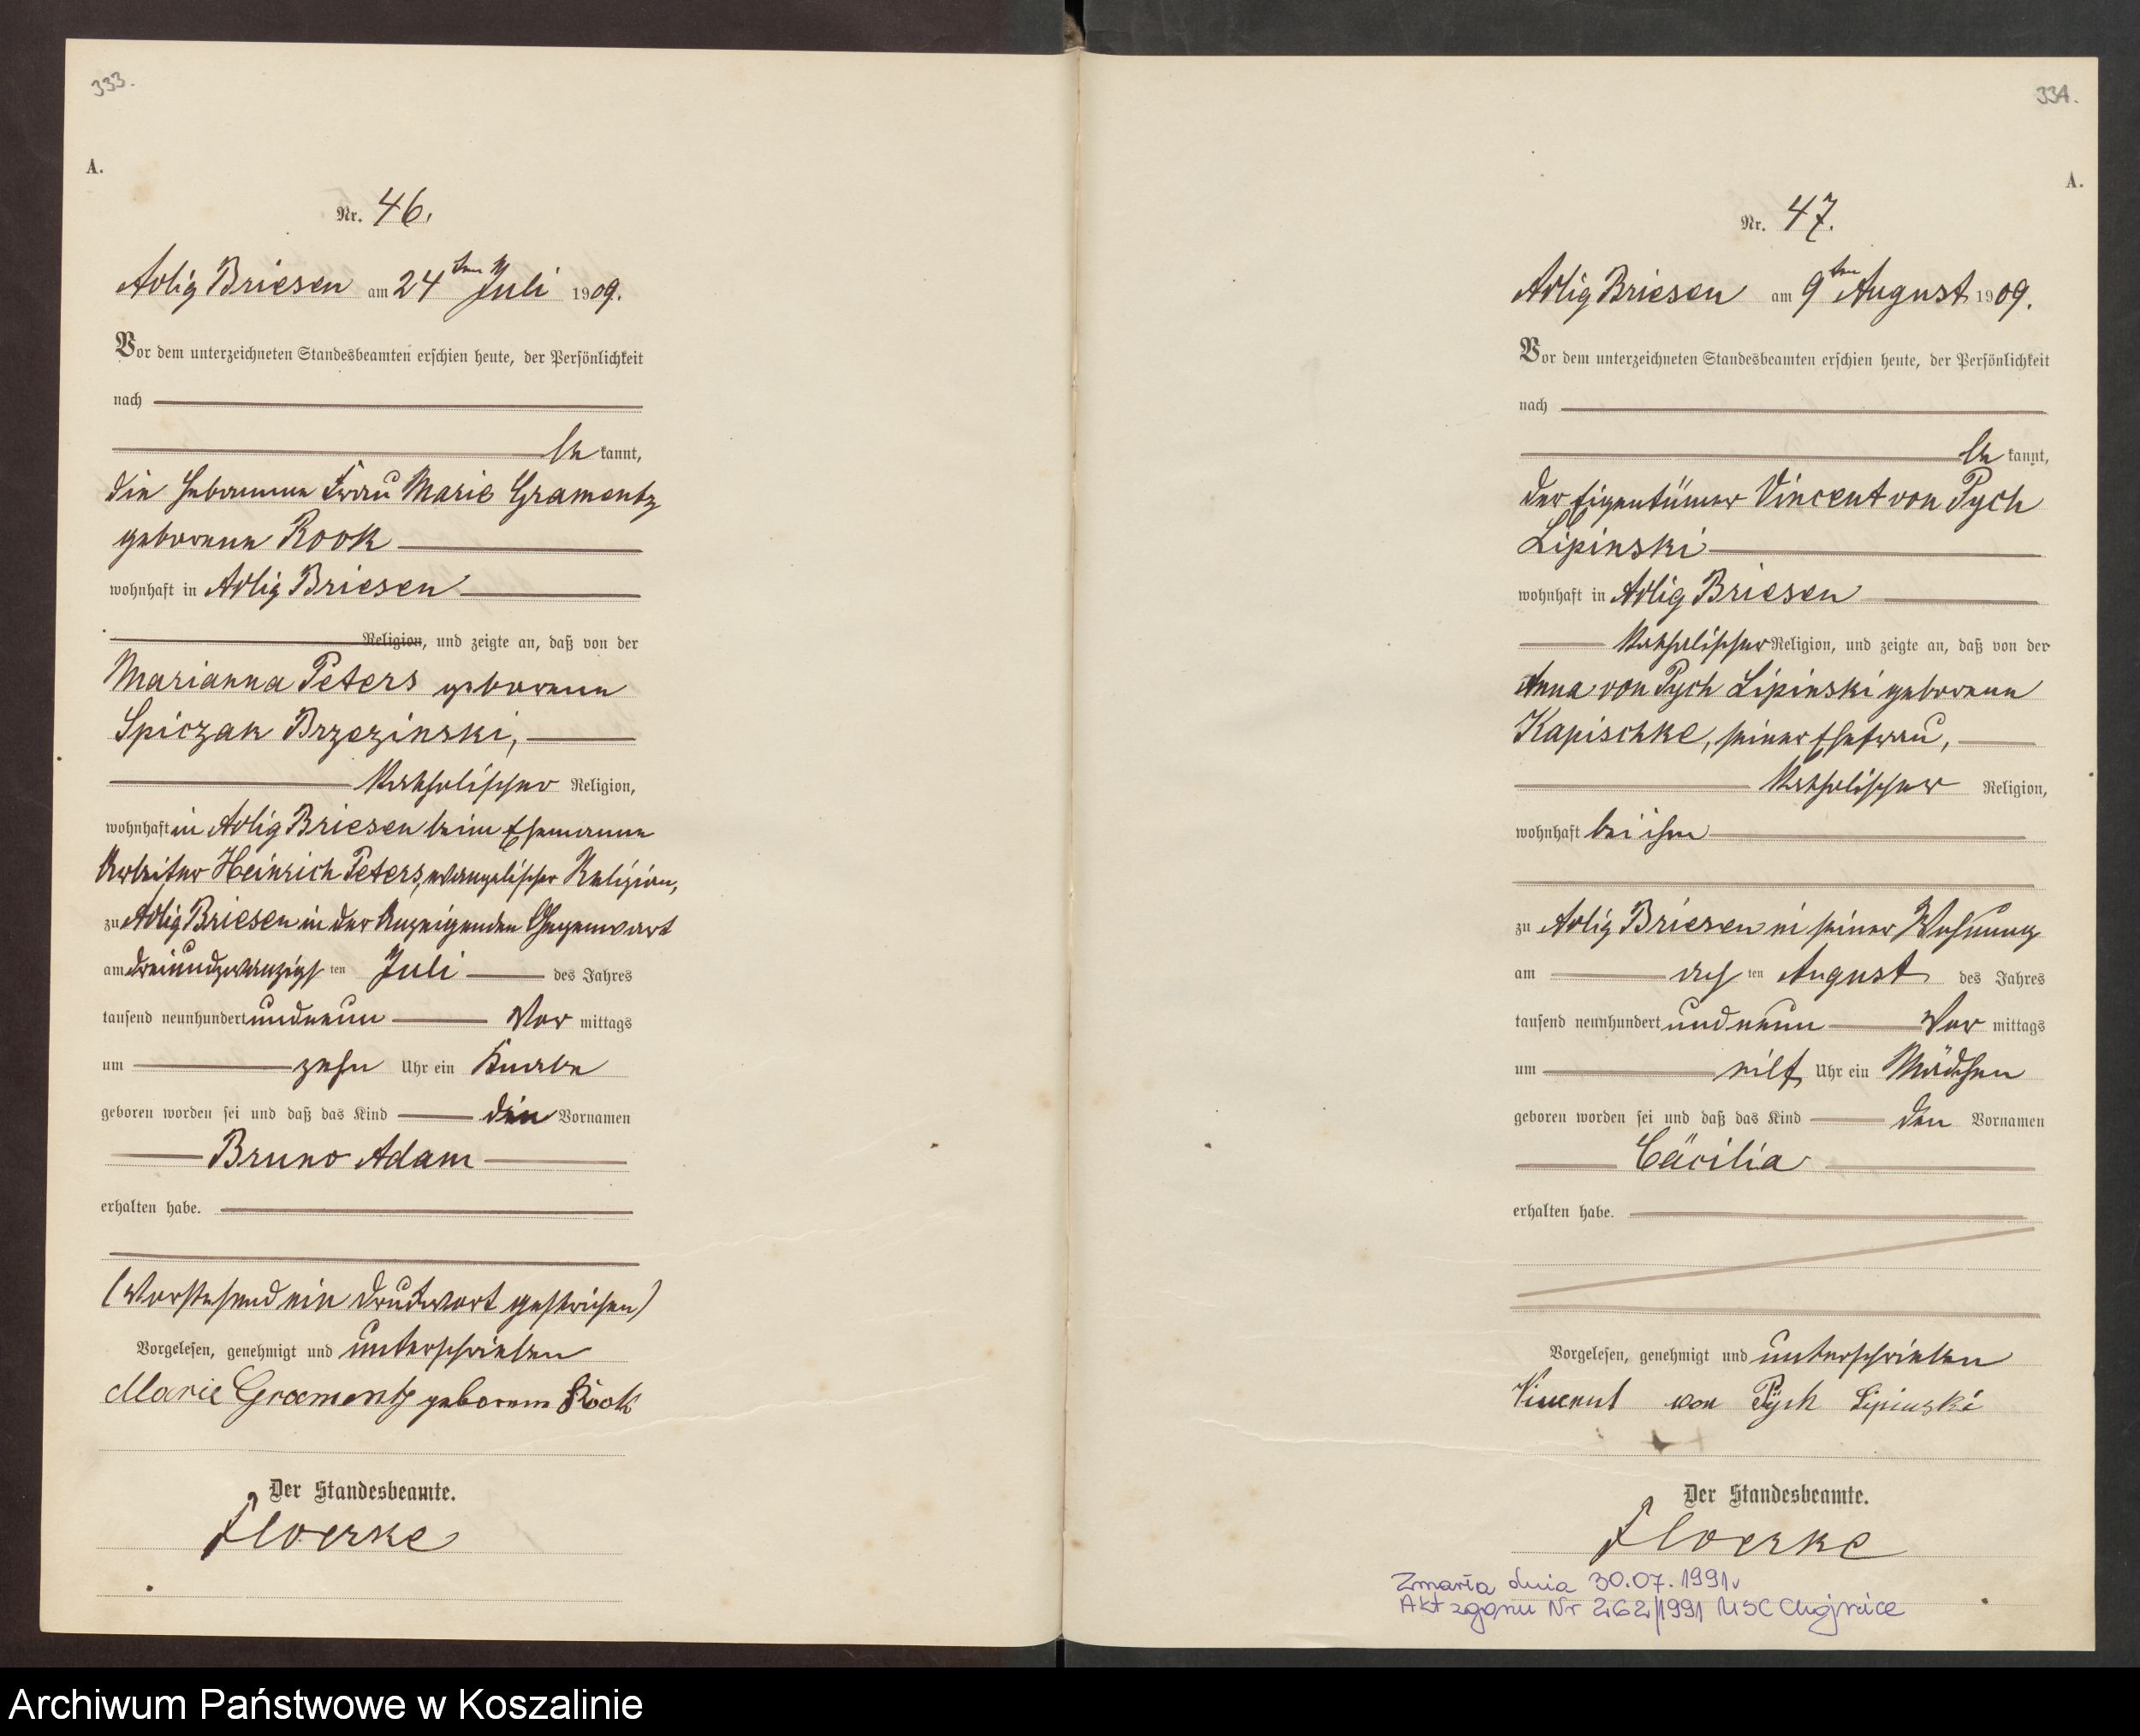 333.
A.
Nr. 46.
Adlig Briesen am 24ten Juli 1909.
Vor dem unterzeichneten Standesbeamten erschien heute, der Persönlichkeit
nach
be kannt,
die Hebamme Frau Marie Gramentz
geborene Rook
wohnhaft in Adlig Briesen
Religion, und zeigte an, daß von der
Marianna Peters geborene
Spiczak Brzezinski,
katholischer Religion,
wohnhaft in Adlig Briesen beim Ehemanne
Arbeiter Heinrich Peters, evangelischer Religion,
zu Adlig Briesen in der Anzeigenden Gegenwart
am dreiundzwanzigsten Juli des Jahres
tausend neunhundert undneun Vor mittags
um zehn Uhr ein Knabe
geboren worden sei und daß das Kind die Vornamen
Bruno Adam
erhalten habe.
(Vorstehend ein Druckwort gestrichen)
Vorgelesen, genehmigt und unterschrieben
Marie Gramentz geborene Rook
Der Standesbeamte.
Floerke
334.
A.
Nr. 47.
Adlig Briesen am 9ten August 1909.
Vor dem unterzeichneten Standesbeamten erschien heute, der Persönlichkeit
nach
be kannt,
der Eigentümer Vincent von Pych
Lipinski
wohnhaft in Adlig Briesen
katholischer Religion, und zeigte an, daß von der
Anna von Pych Lipinski geborene
Kapischke, seiner Ehefrau,
katholischer Religion,
wohnhaft bei ihm
zu Adlig Briesen in seiner Wohnung
am achten August des Jahres
tausend neunhundert undneun Vor mittags
um eilf Uhr ein Mädchen
geboren worden sei und daß das Kind den Vornamen
Cäcilia
erhalten habe.
Vorgelesen, genehmigt und unterschrieben
Vincent von Pych Lipinski
Der Standesbeamte.
Floerke
Zmarła dnia 30.07.1991r
Akt zgonu Nr 262/1991 USC Chojnice
Archiwum Państwowe w Koszalinie